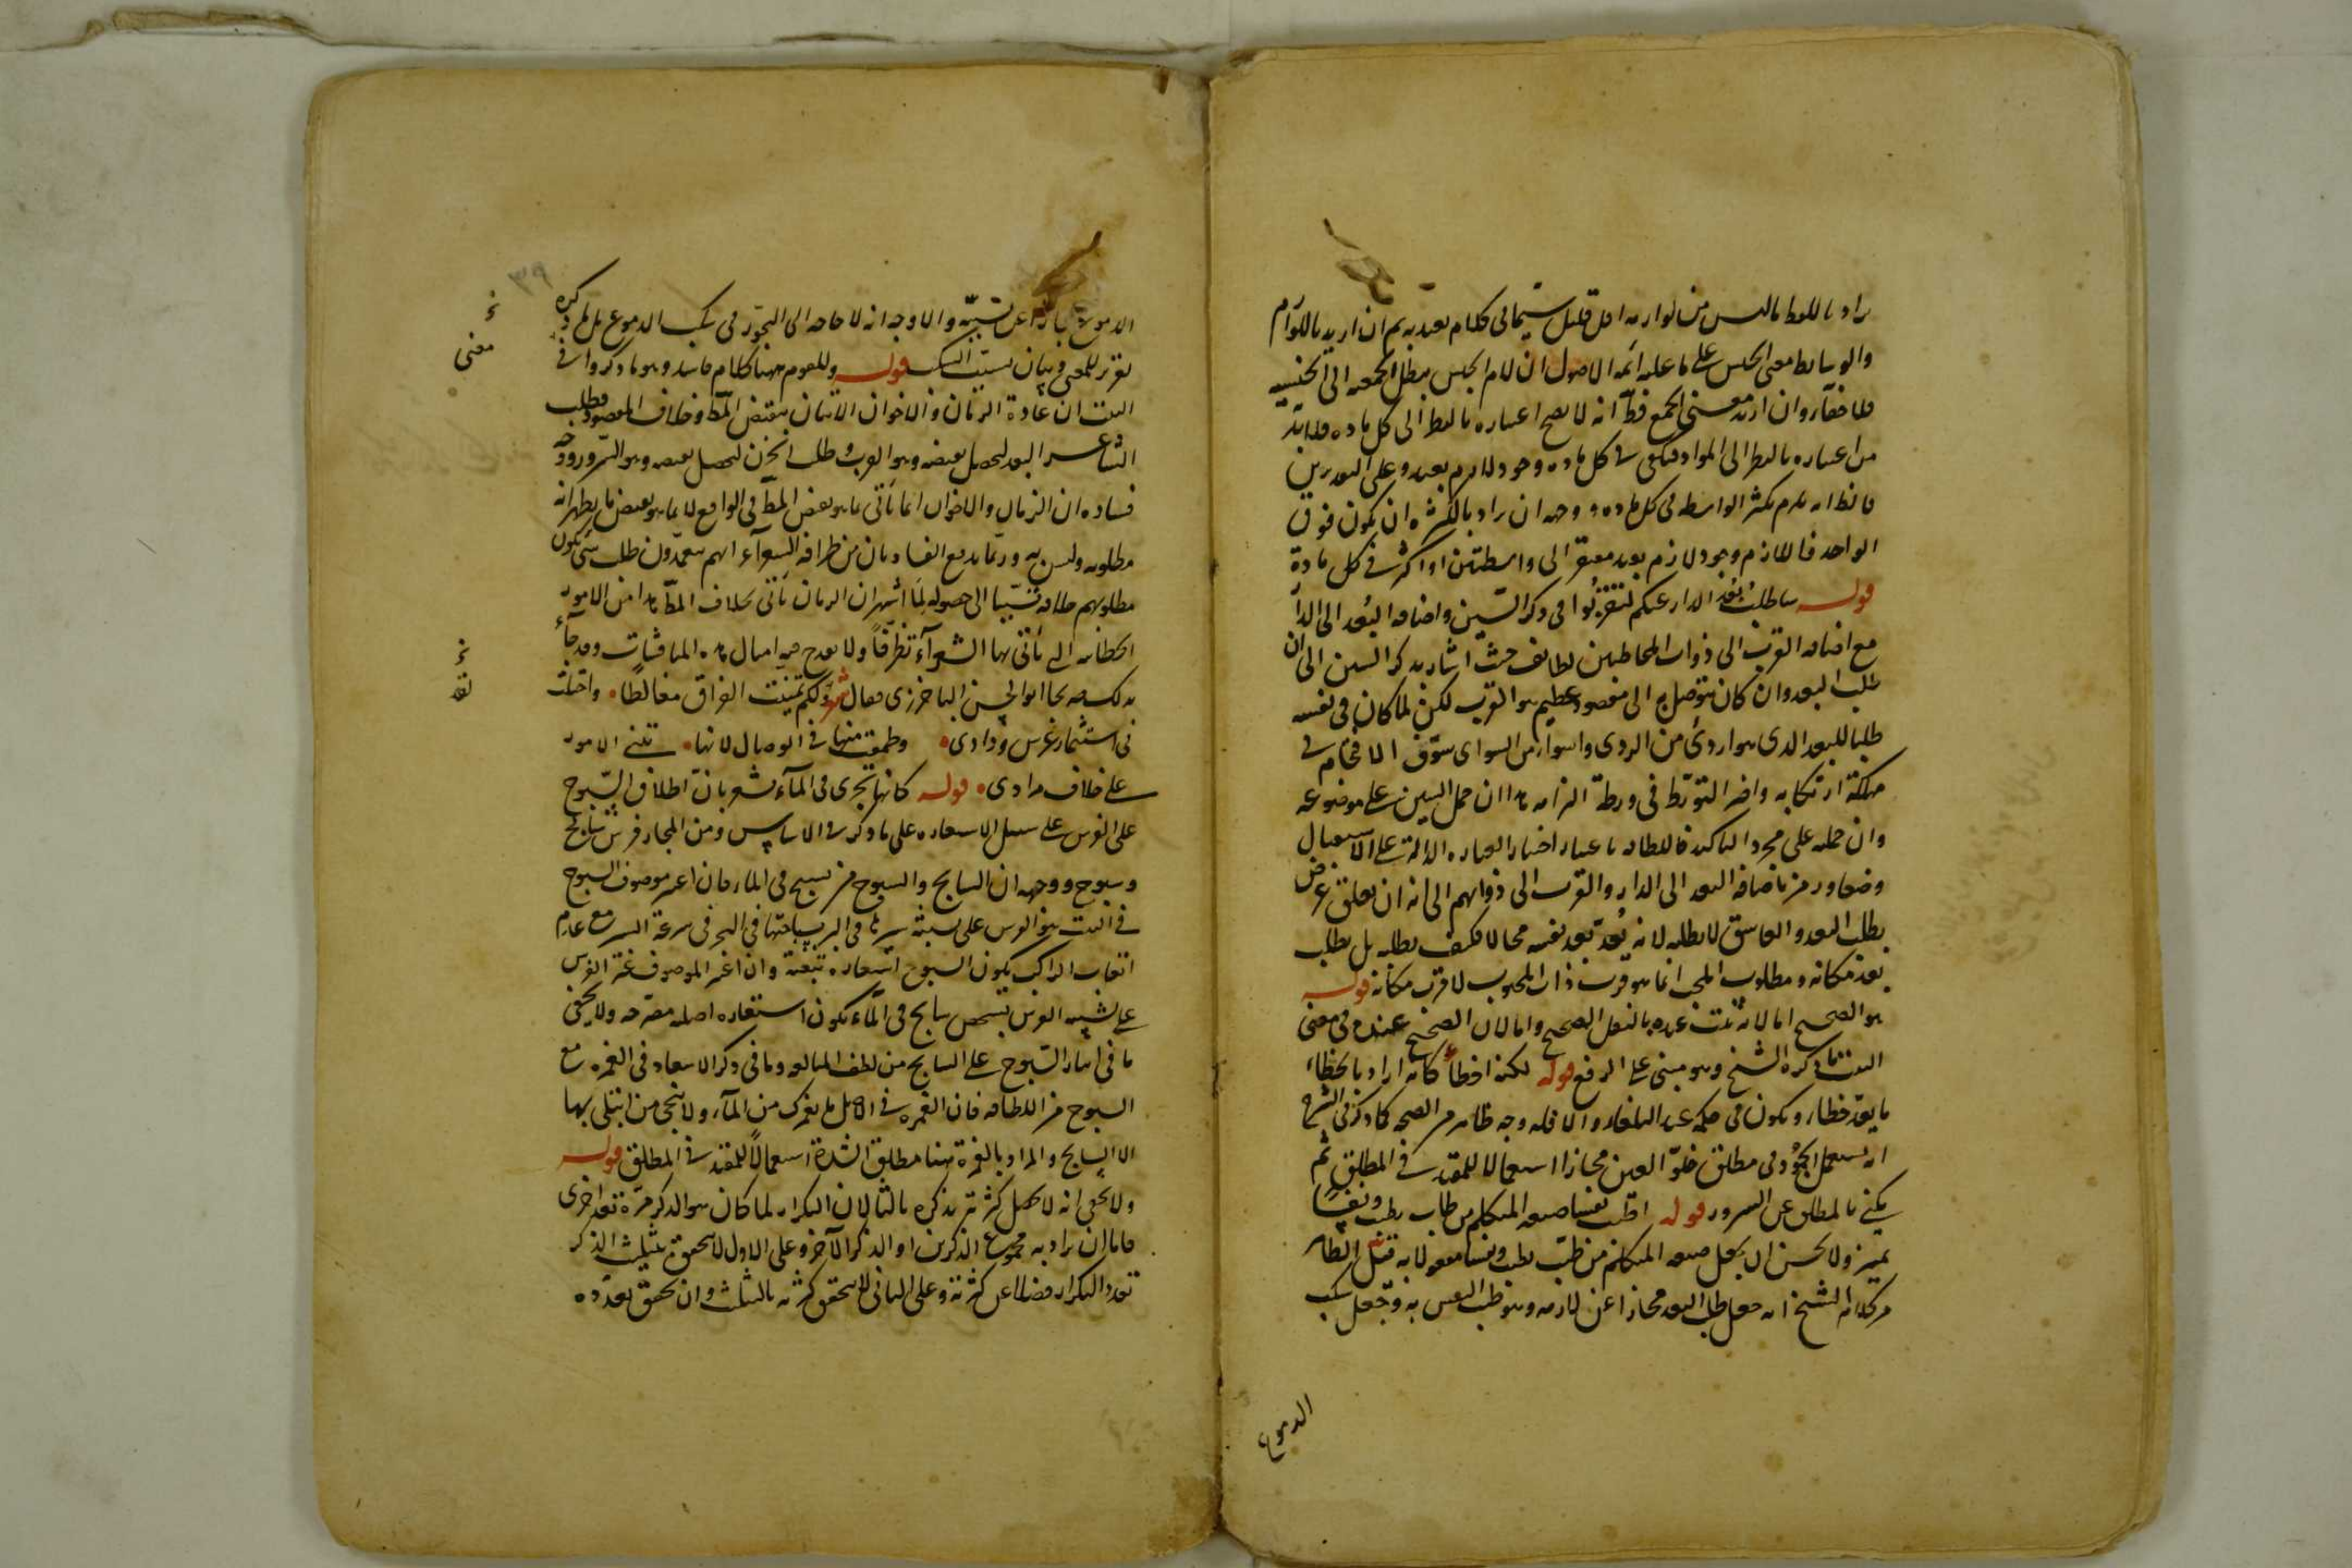 يراد باللفظ ما ليس من لوازمه اقل قليل سيما فى كلام يعتد به ثم ان اريد باللوازم
والوسايط معنى الجنس على ما عليه ائمه الاصول ان لام الجنس يبطل الجمعيه الى الجنسيه
فلا خفآء وان اريد معنى الجمع فظ انه لا يصح اعتباره بالنظر الى كل ماده فلابد
من اعتباره بالنظر الى المواد فيكفى فى كل ماده وجود لازم بعيد وعلى التقديرين
فالظ انه يلزم تكثر الواسطه فى كل ماده ووجهه ان يراد بالكثره ان يكون فوق
الواحد فاللازم وجود لازم بعيد مفتقر الى واسطتين او اكثر فى كل مادة
قوله ساطلب بُعْد الدار عنكم لتقربُوا فى ذكر السّين واضافه البُعد الى الدار
مع اضافه القرب الى ذوات المخاطبين لطايف حيث اشار بذكر السين الى ان
طلب البعد وان كان يتوصل به الى مقصود عظيم هو القرب لكن لما كان فى نفسه
طلبا للبعد الذى هو اردئ من الردى واسوا من السواى سوّف الاقتحام فى
مهلكة ارتكابه واخر التورّط فى ورطة التزامه هذا ان حمل السين على موضوعه
وان حمله على مجرد التاكيد فاللطافه باعتبار اختيار العباره الدالة على الاستقبال
وضعا ورمز باضافه البعد الى الدار والقرب الى ذواتهم الى انه ان تعلق غرض
بطلب البعد والعاشق لا يطلبه لانه يُعدّ بعد نفسه محالا فكيف يطلبه بل يطلب
بعد مكانه ومطلوب المحب انما هو قرب ذات المحبوب لا قرب مكانه قوله
هو الصحيح اما لانه ثبت عنده بالنقل الصحيح واما لان الصحيح عنده فى معنى
البيت ما ذكره الشيخ وهو مبنى على الرفع قوله لكنه اخطأ كانه اراد بالخطاء
ما يعد خطاء ويكون فى حكمه عند البلغاء والا فله وجه ظاهر من الصحه كما ذكر فى الشرح
انه يستعمل الجمود فى مطلق خلوّ العين مجازا استعمالا للمقيد فى المطلق ثم
يكنى بالمطلق عن السرور قوله اطيب نفسا صيغه المتكلم من طاب يطيب ونفسًا
تميز ولا يحسن ان يجعل صيغه المتكلم من طيّب يطيب ونفسا مفعولا به قيل الظاهر
من كلام الشيخ انه جعل طلب البعد مجازا عن لازمه وهو طيب النفس به وجعل سكب
الدموع
الدموع مجازا عن تسبّبه والاوجه انه لا حاجه الى التجوّز فى سكب الدموع بل ما ذكره
تقرير للمعنى وبيان لسبب السكب قوله وللقوم ههنا كلام فاسد وهو ما ذكروا فى
البيت ان عادة الزمان والاخوان الاتيان بنقيض المط وخلاف المقصود فطلب
الشاعر البعد ليحصل نقيضه وهو القرب وطلب الحزن ليحصل نقيضه وهو السّرور ووجه
فساده ان الزمان والاخوان انما يَأتى بما هو نقيض المط فى الواقع لا بما هو نقيض ما يظهر انه
مطلوبه وليس به وربّما يدفع الفساد بان من ظرافه الشعرآء انهم يتعمدون طلب شئ يكون
مطلوبهم خلافه تسبّبا الى حصوله لِمَا اشتهر ان الزمان يَأتى بخلاف المطّ هذا من الامور
الخطابيه التى يَأتى بها الشعرآء تظرّفًا ولا يقدح فيه امثال هذه المناقشات وقد جآء
بذلك صريحا ابو الحسن الباخرزى فقال شعر ولكم تمنيت الفراق مغالطا واحتلت
فى استثمار غرس ودادى وطمعت منها فى الوصال لانها تبنى الامور
على خلاف مرادى قوله كانها تجرى فى المآء يشعر بانّ اطلاق السّبوح
على الفرس على سبيل الاستعاره على ما ذكر فى الاساس ومن المجاز فرس سابح
وسبوح ووجهه ان السابح والسبوح من يسبح فى الماء فان اعتبر موصوف السبوح
فى البيت هو الفرس على تشبيه سيرها فى البر بسباحتها فى البحر فى سرعة السير مع عدم
اتعاب الراكب يكون السبوح استعاره تبعية وان اعتبر الموصوف غير الفرس
على تشبيه الفرس بشخص سابح فى المآء يكون استعاره اصليه مصرحه ولا يخفى
ما فى ايثار السّبوح على السابح من لطف المبالغه وما فى ذكر الاسعاد فى الغمره مع
السبوح من اللطافه فان الغمره فى الاصل ما يغمرك من المآء ولا ينجى من ابتلى بها
الا السابح والمراد بالغمرة ههنا مطلق الشدة استعمالًا للمقيد فى المطلق قوله
ولا يخفى انه لا يحصل كثرته بذكره ثالثا لان التكرار لما كان هو الذكر مرّة بعد اخرى
فاما ان يراد به مجموع الذكرين او الذكر الآخر وعلى الاول لا يتحقق بتثليث الذكر
تعدد التكرار فضلا عن كثرته وعلى الثانى لا يتحقق كثرته بالتثليث وان تحقق تعدده
معنى